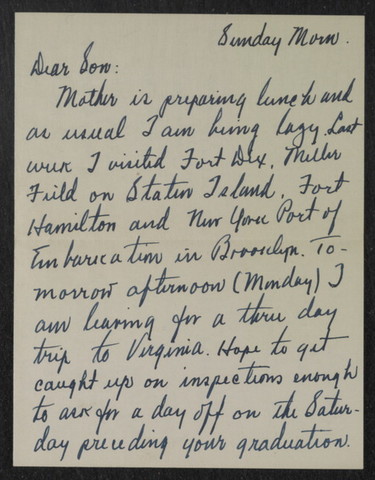 Sunday Morn.
Dear Son:
Mother is preparing lunch and
as usual I am being lazy. Last
week I visited Fort Dix, Miller
Field on Staten Island, Fort
Hamilton and New York Port of
Embarkation in Brooklyn. To-
morrow afternoon (Monday) I
am leaving for a three day
trip to Virginia. Hope to get
caught up on inspections enough
to ask for a day off on the Satur-
day preceding your graduation.